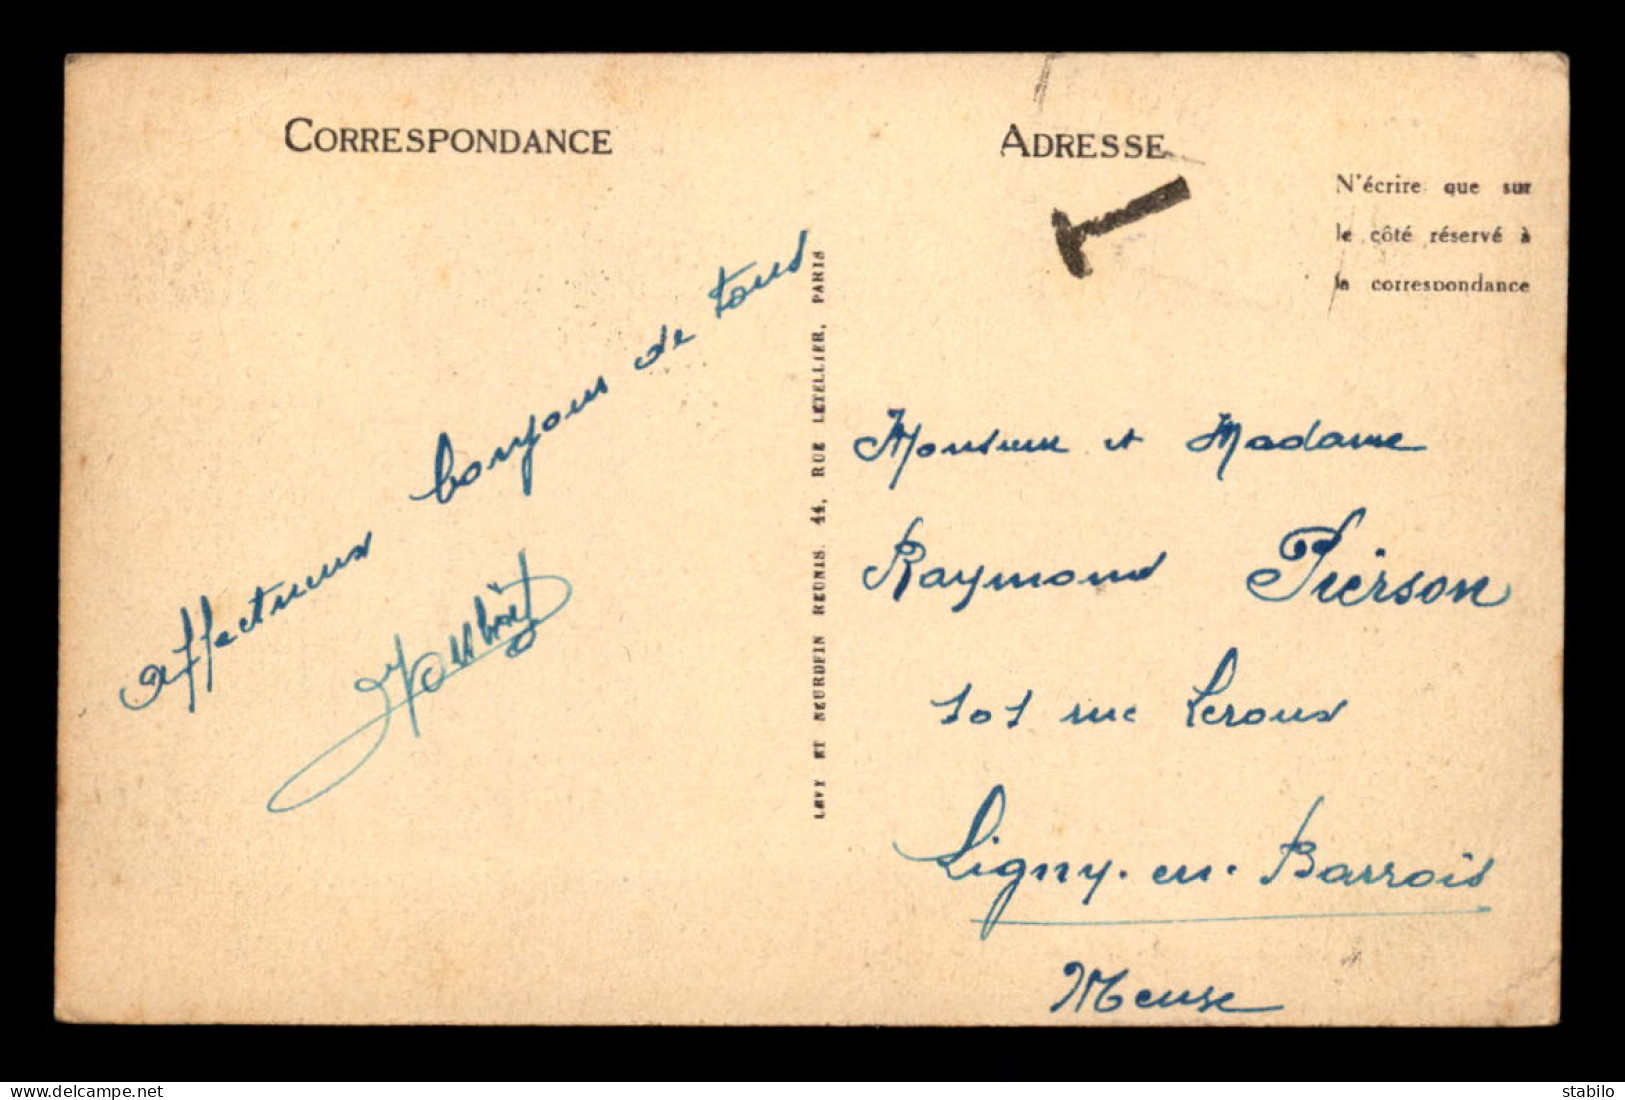 CORRESPONDANCE
affectueux bonjour de tous
ADRESSE
T
N'écrire que sur
le côté réservé à
la correspondance
LEVY ET NEURDEIN REUNIS. 44, RUE LETELLIER, PARIS
Monsieur et Madame
Raymond Piërson
101 rue Leroux
Ligny-en-Barrois
Meuse
stabilo